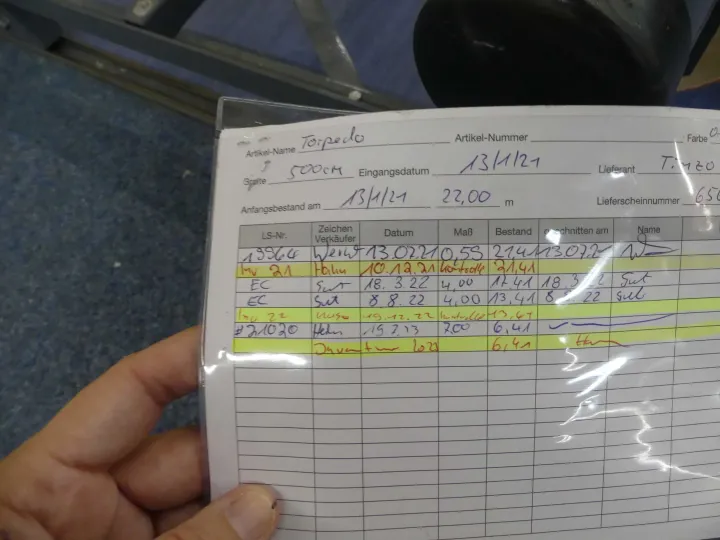 Artikel-Name Torpedo Artikel-Nummer Farbe
Breite 500cm Eingangsdatum 13/1/21 Lieferant
Anfangsbestand am 13/1/21 22,00 m Lieferscheinnummer 650
LS-Nr. Zeichen Verkäufer Datum Maß Bestand geschnitten am Name
19964 13.07.21 0,59 21,41 13.07.2
Inv 21 Hahn 10.12.21 Kontrolle 21,41
EC Gut 18.3.22 4,00 17,41 18.3.22 Gut
EC Gut 8.8.22 4,00 13,41 8.8.22 Gut
Inv 22 19.12.22 13,41
#21020 Hahn 19.2.23 7,00 6,41
Inventur 2023 6,41